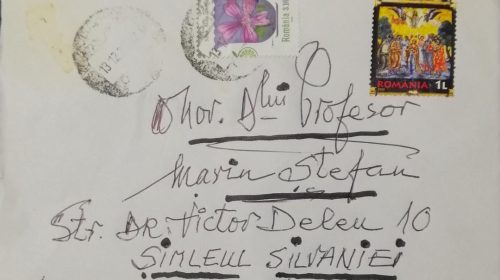 România
ROMANIA 1L
Onor. Dlui Profesor
Marin Ștefan
Str. DR. Victor Deleu 10
ȘIMLEUL SILVANIEI